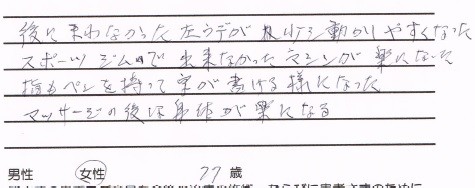 後にまわらなかった左ウデが 動かしやすくなった
スポーツジムで出来なかったマシンが楽になった
指もペンを持って字が書ける様になった
マッサージの後は身体が楽になる
男性 女性 77 歳